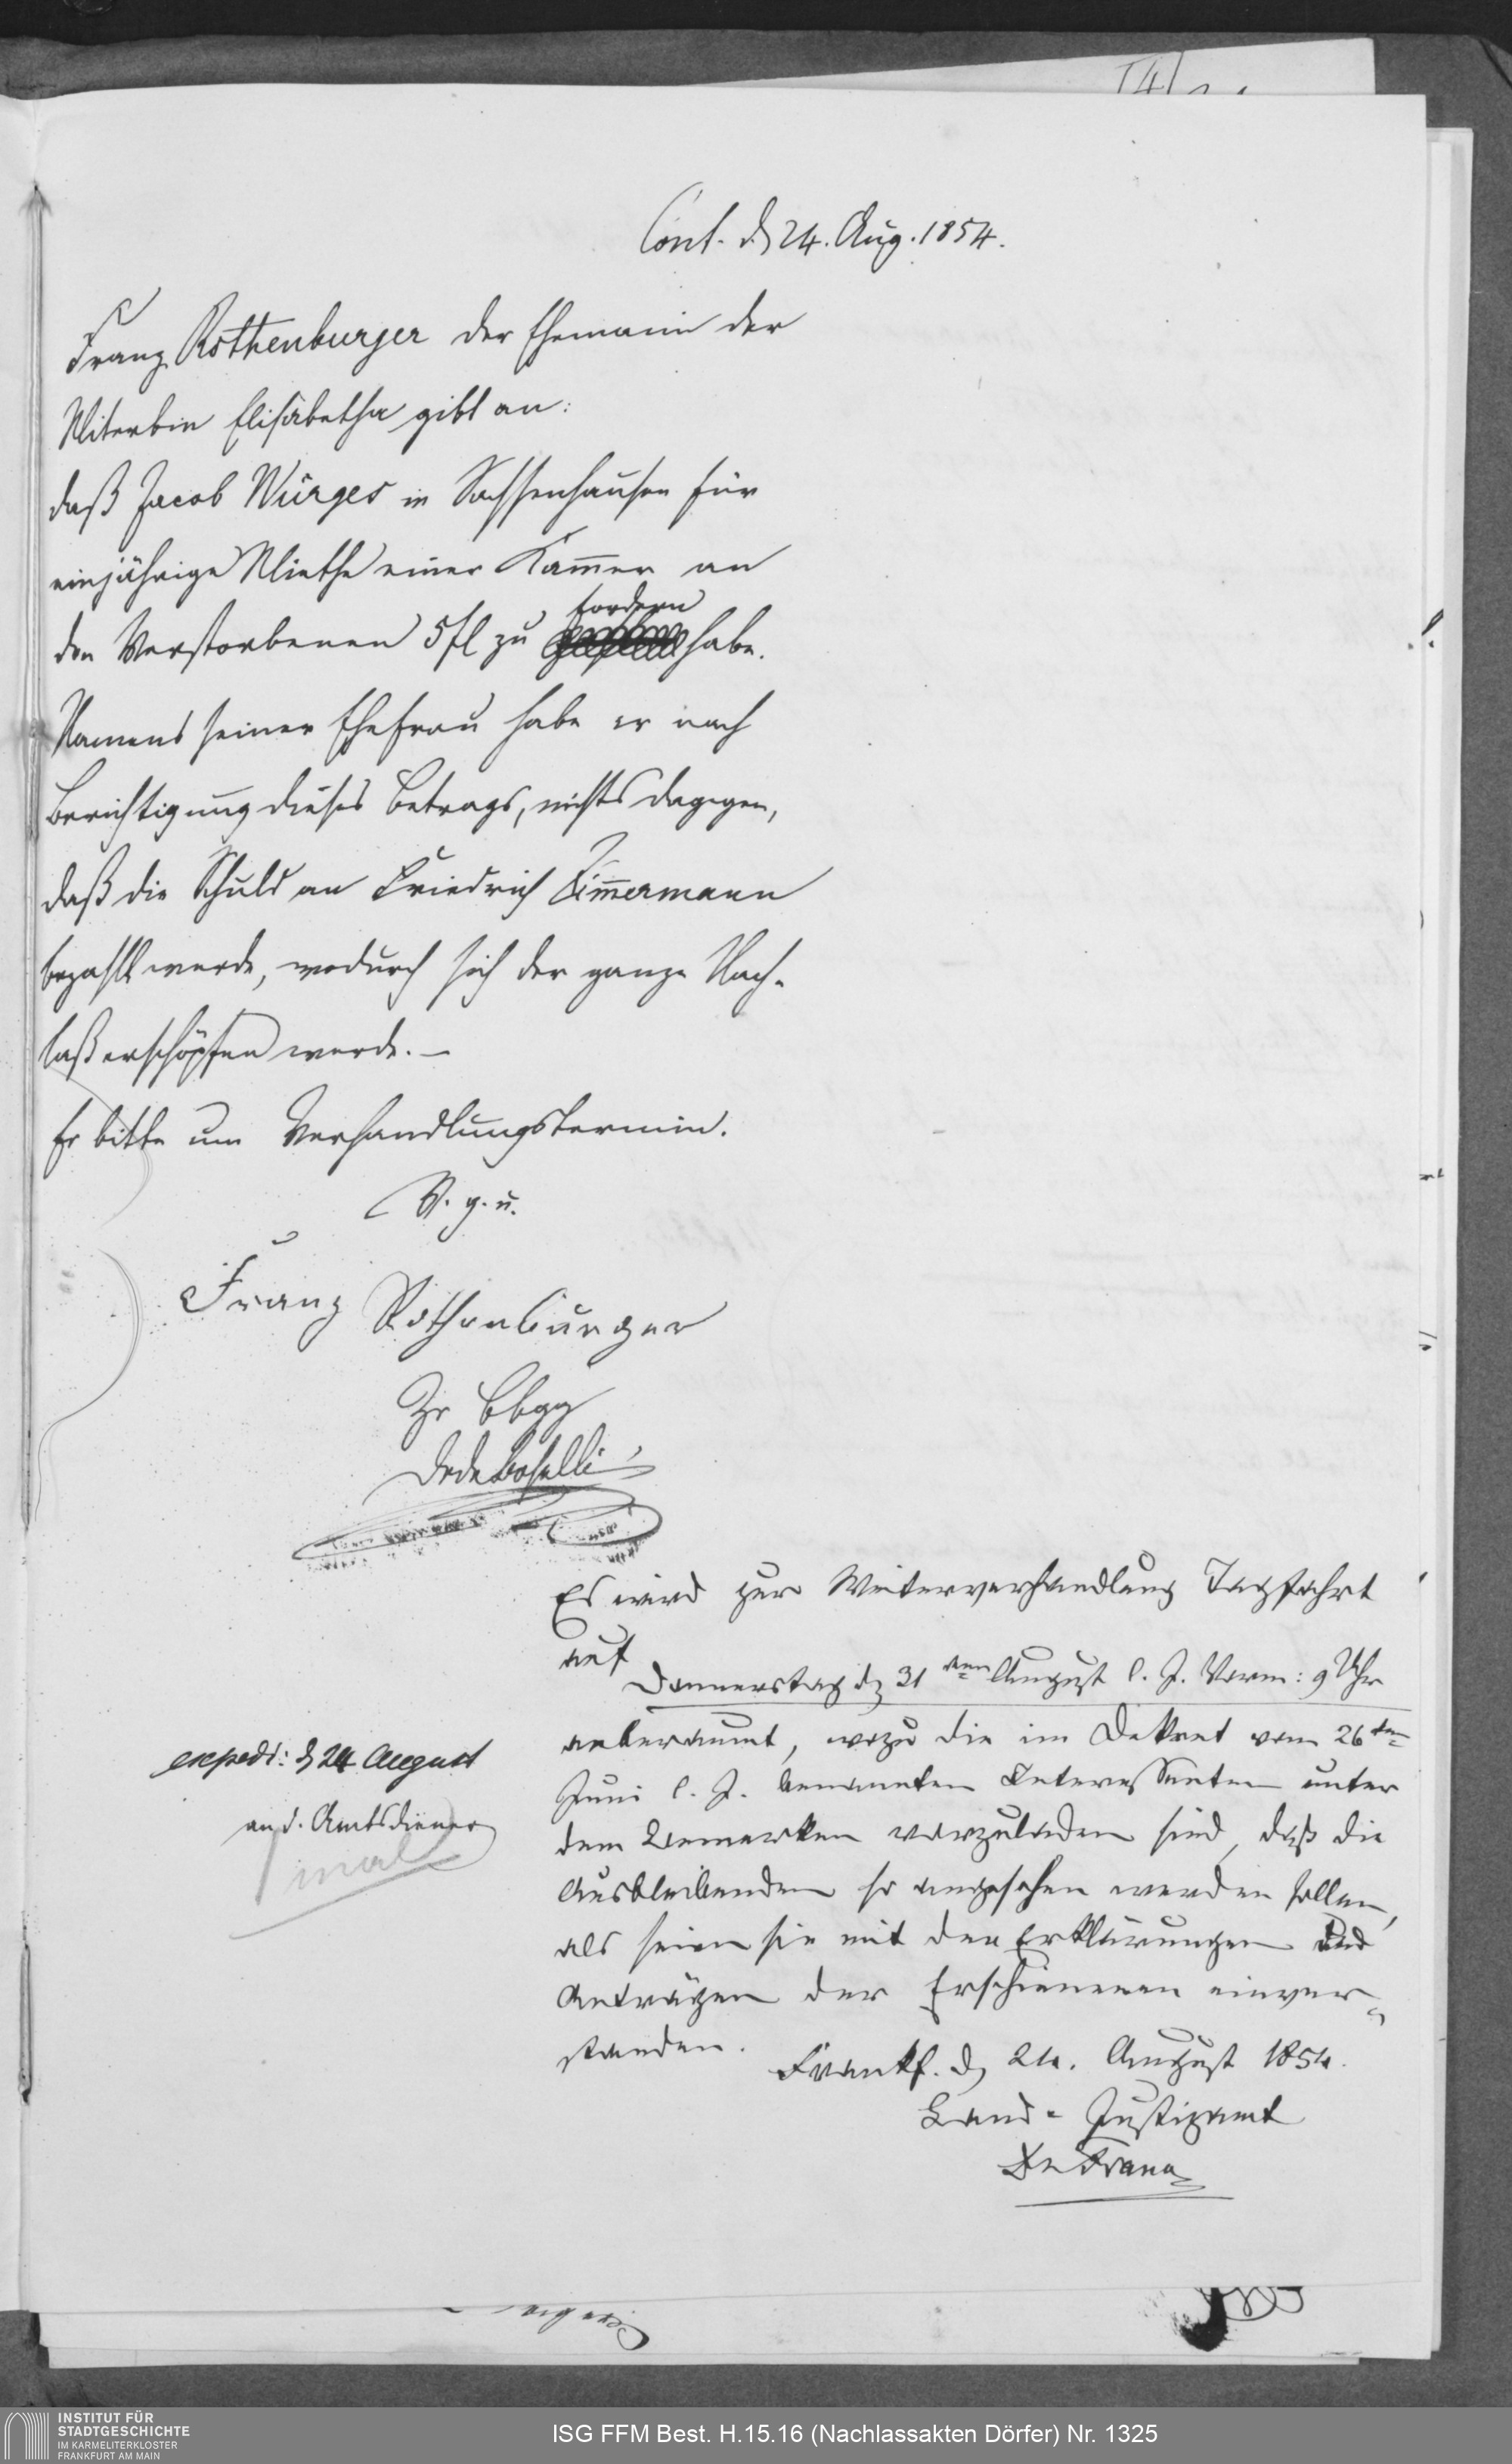 Cont. d 24. Aug. 1854.
Franz Rothenburger der Ehemann der
Miterbin Elisabetha gibt an:
daß Jacob Würges in Sachsenhausen für
einjährige Miethe einer Kam̅er an
den Verstorbenen 5 fl zu fordern habe.
Namens seiner Ehefrau habe er nach
Berichtigung dieses Betrags, nichts dagegen,
daß die Schuld an Friedrich Zim̅ermann
bezahlt werde, wodurch sich der ganze Nach-
laß erschöpfen werde. —
Er bitte um Verhandlungstermin.
V. g. u.
Franz Rothenburger
Zr Bbgg
Es wird zur Weiterverhandlung Tagfahrt
auf
Donnerstag d 31ten August l. J. Vorm: 9 Uhr
anberaumt, wozu die im Dekret vom 26ten
Juni l. J. benannten Interessenten unter
dem Bemerken vorzuladen sind, daß die
Ausbleibenden so angesehen werden sollen,
als seien sie mit den Erklärungen und
Anträgen der Erschienenen einver-
standen.
Frankf. d 24. August 1854.
Land-Justizamt
expedi: d 24 August
an d. Amtsdiener
INSTITUT FÜR
STADTGESCHICHTE
IM KARMELITERKLOSTER
FRANKFURT AM MAIN
ISG FFM Best. H.15.16 (Nachlassakten Dörfer) Nr. 1325